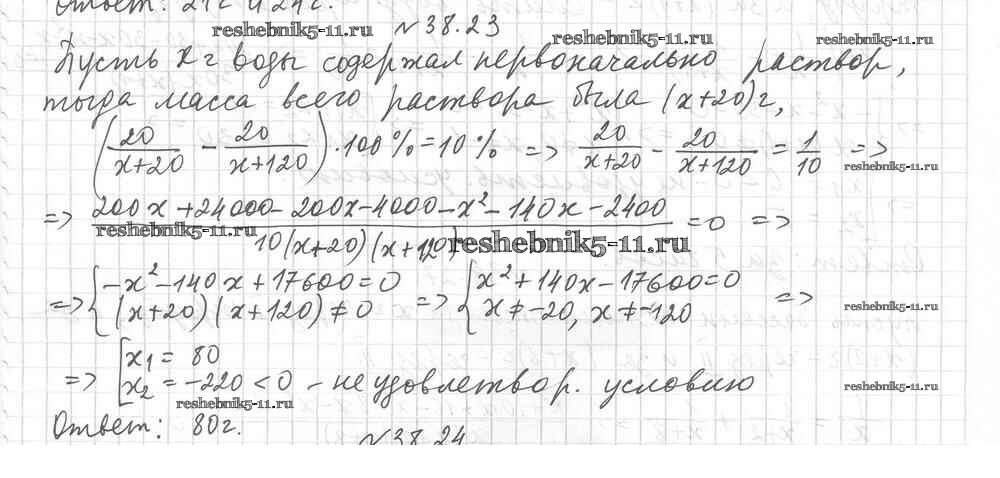 Ответ: 21г и 24г.
№38.23
reshebnik5-11.ru reshebnik5-11.ru reshebnik5-11.ru
Пусть x г воды содержал первоначально раствор,
тогда масса всего раствора была (x+20)г,
(20/(x+20) - 20/(x+120))·100%=10% => 20/(x+20) - 20/(x+120) = 1/10 =>
reshebnik5-11.ru
=> (200x+24000-200x-4000-x²-140x-2400)/(10(x+20)(x+120)) =0 =>
reshebnik5-11.ru reshebnik5-11.ru
=> { -x²-140x+17600=0 => { x²+140x-17600=0
(x+20)(x+120)≠0 x≠-20, x≠-120 =>
reshebnik5-11.ru
=> [ x₁ = 80
x₂ = -220<0 - не удовлетвор. условию
reshebnik5-11.ru reshebnik5-11.ru
Ответ: 80г.
№38.24